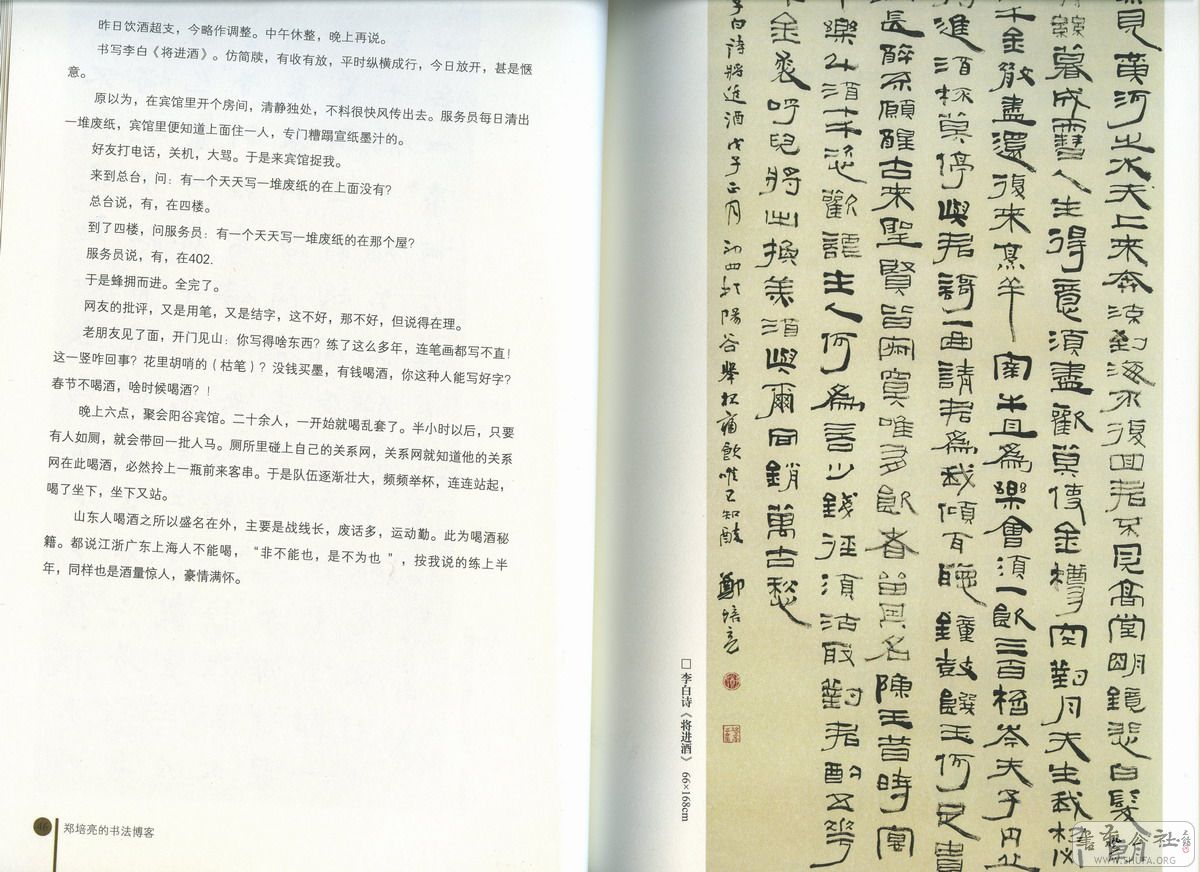 昨日饮酒超支，今略作调整。中午休整，晚上再说。
书写李白《将进酒》。仿简牍，有收有放，平时纵横成行，今日放开，甚是惬
意。
原以为，在宾馆里开个房间，清静独处，不料很快风传出去。服务员每日清出
一堆废纸，宾馆里便知道上面住一人，专门糟蹋宣纸墨汁的。
好友打电话，关机，大骂。于是来宾馆捉我。
来到总台，问：有一个天天写一堆废纸的在上面没有？
总台说，有，在四楼。
到了四楼，问服务员：有一个天天写一堆废纸的在那个屋？
服务员说，有，在402.
于是蜂拥而进。全完了。
网友的批评，又是用笔，又是结字，这不好，那不好，但说得在理。
老朋友见了面，开门见山：你写得啥东西？练了这么多年，连笔画都写不直！
这一竖咋回事？花里胡哨的（枯笔）？没钱买墨，有钱喝酒，你这种人能写好字？
春节不喝酒，啥时候喝酒？！
晚上六点，聚会阳谷宾馆。二十余人，一开始就喝乱套了。半小时以后，只要
有人如厕，就会带回一批人马。厕所里碰上自己的关系网，关系网就知道他的关系
网在此喝酒，必然拎上一瓶前来客串。于是队伍逐渐壮大，频频举杯，连连站起，
喝了坐下，坐下又站。
山东人喝酒之所以盛名在外，主要是战线长，废话多，运动勤。此为喝酒秘
籍。都说江浙广东上海人不能喝，“非不能也，是不为也”，按我说的练上半
年，同样也是酒量惊人，豪情满怀。
46
郑培亮的书法博客
見黃河之水天上來奔流到海不復回君不見高堂明鏡悲白髮朝
暮成雪人生得意須盡歡莫使金樽空對月天生我材必
千金散盡還復來烹羊宰牛且為樂會須一飲三百杯岑夫子丹丘
進酒杯莫停與君歌一曲請君為我傾耳聽鐘鼓饌玉何足貴
長醉不願醒古來聖賢皆寂寞唯有飲者留其名陳王昔時宴
樂斗酒十千恣歡謔主人何為言少錢徑須沽取對君酌五花
金裘呼兒將出換美酒與爾同銷萬古愁
白詩將進酒戊子正月初四於陽谷舉杯痛飲唯己知
鄭培亮
□李白诗《将进酒》 66×168cm
WWW.SHUFA.ORG